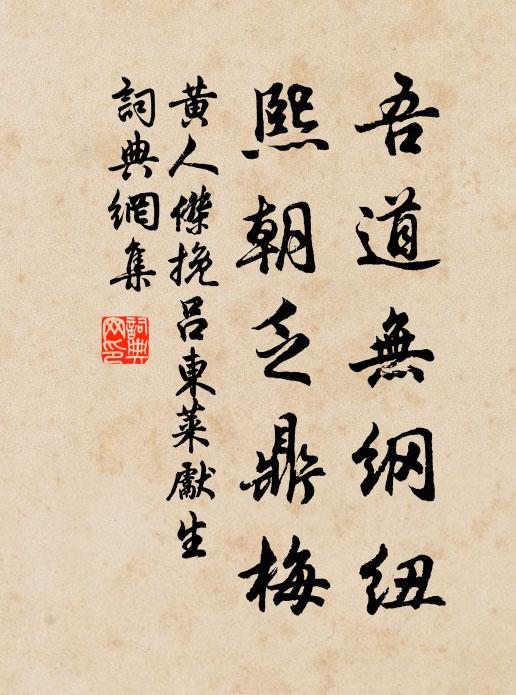 吾道無綱紐
熙朝乏鼎梅
黃人傑挽呂東萊獻生
詞典網集
詞典网印